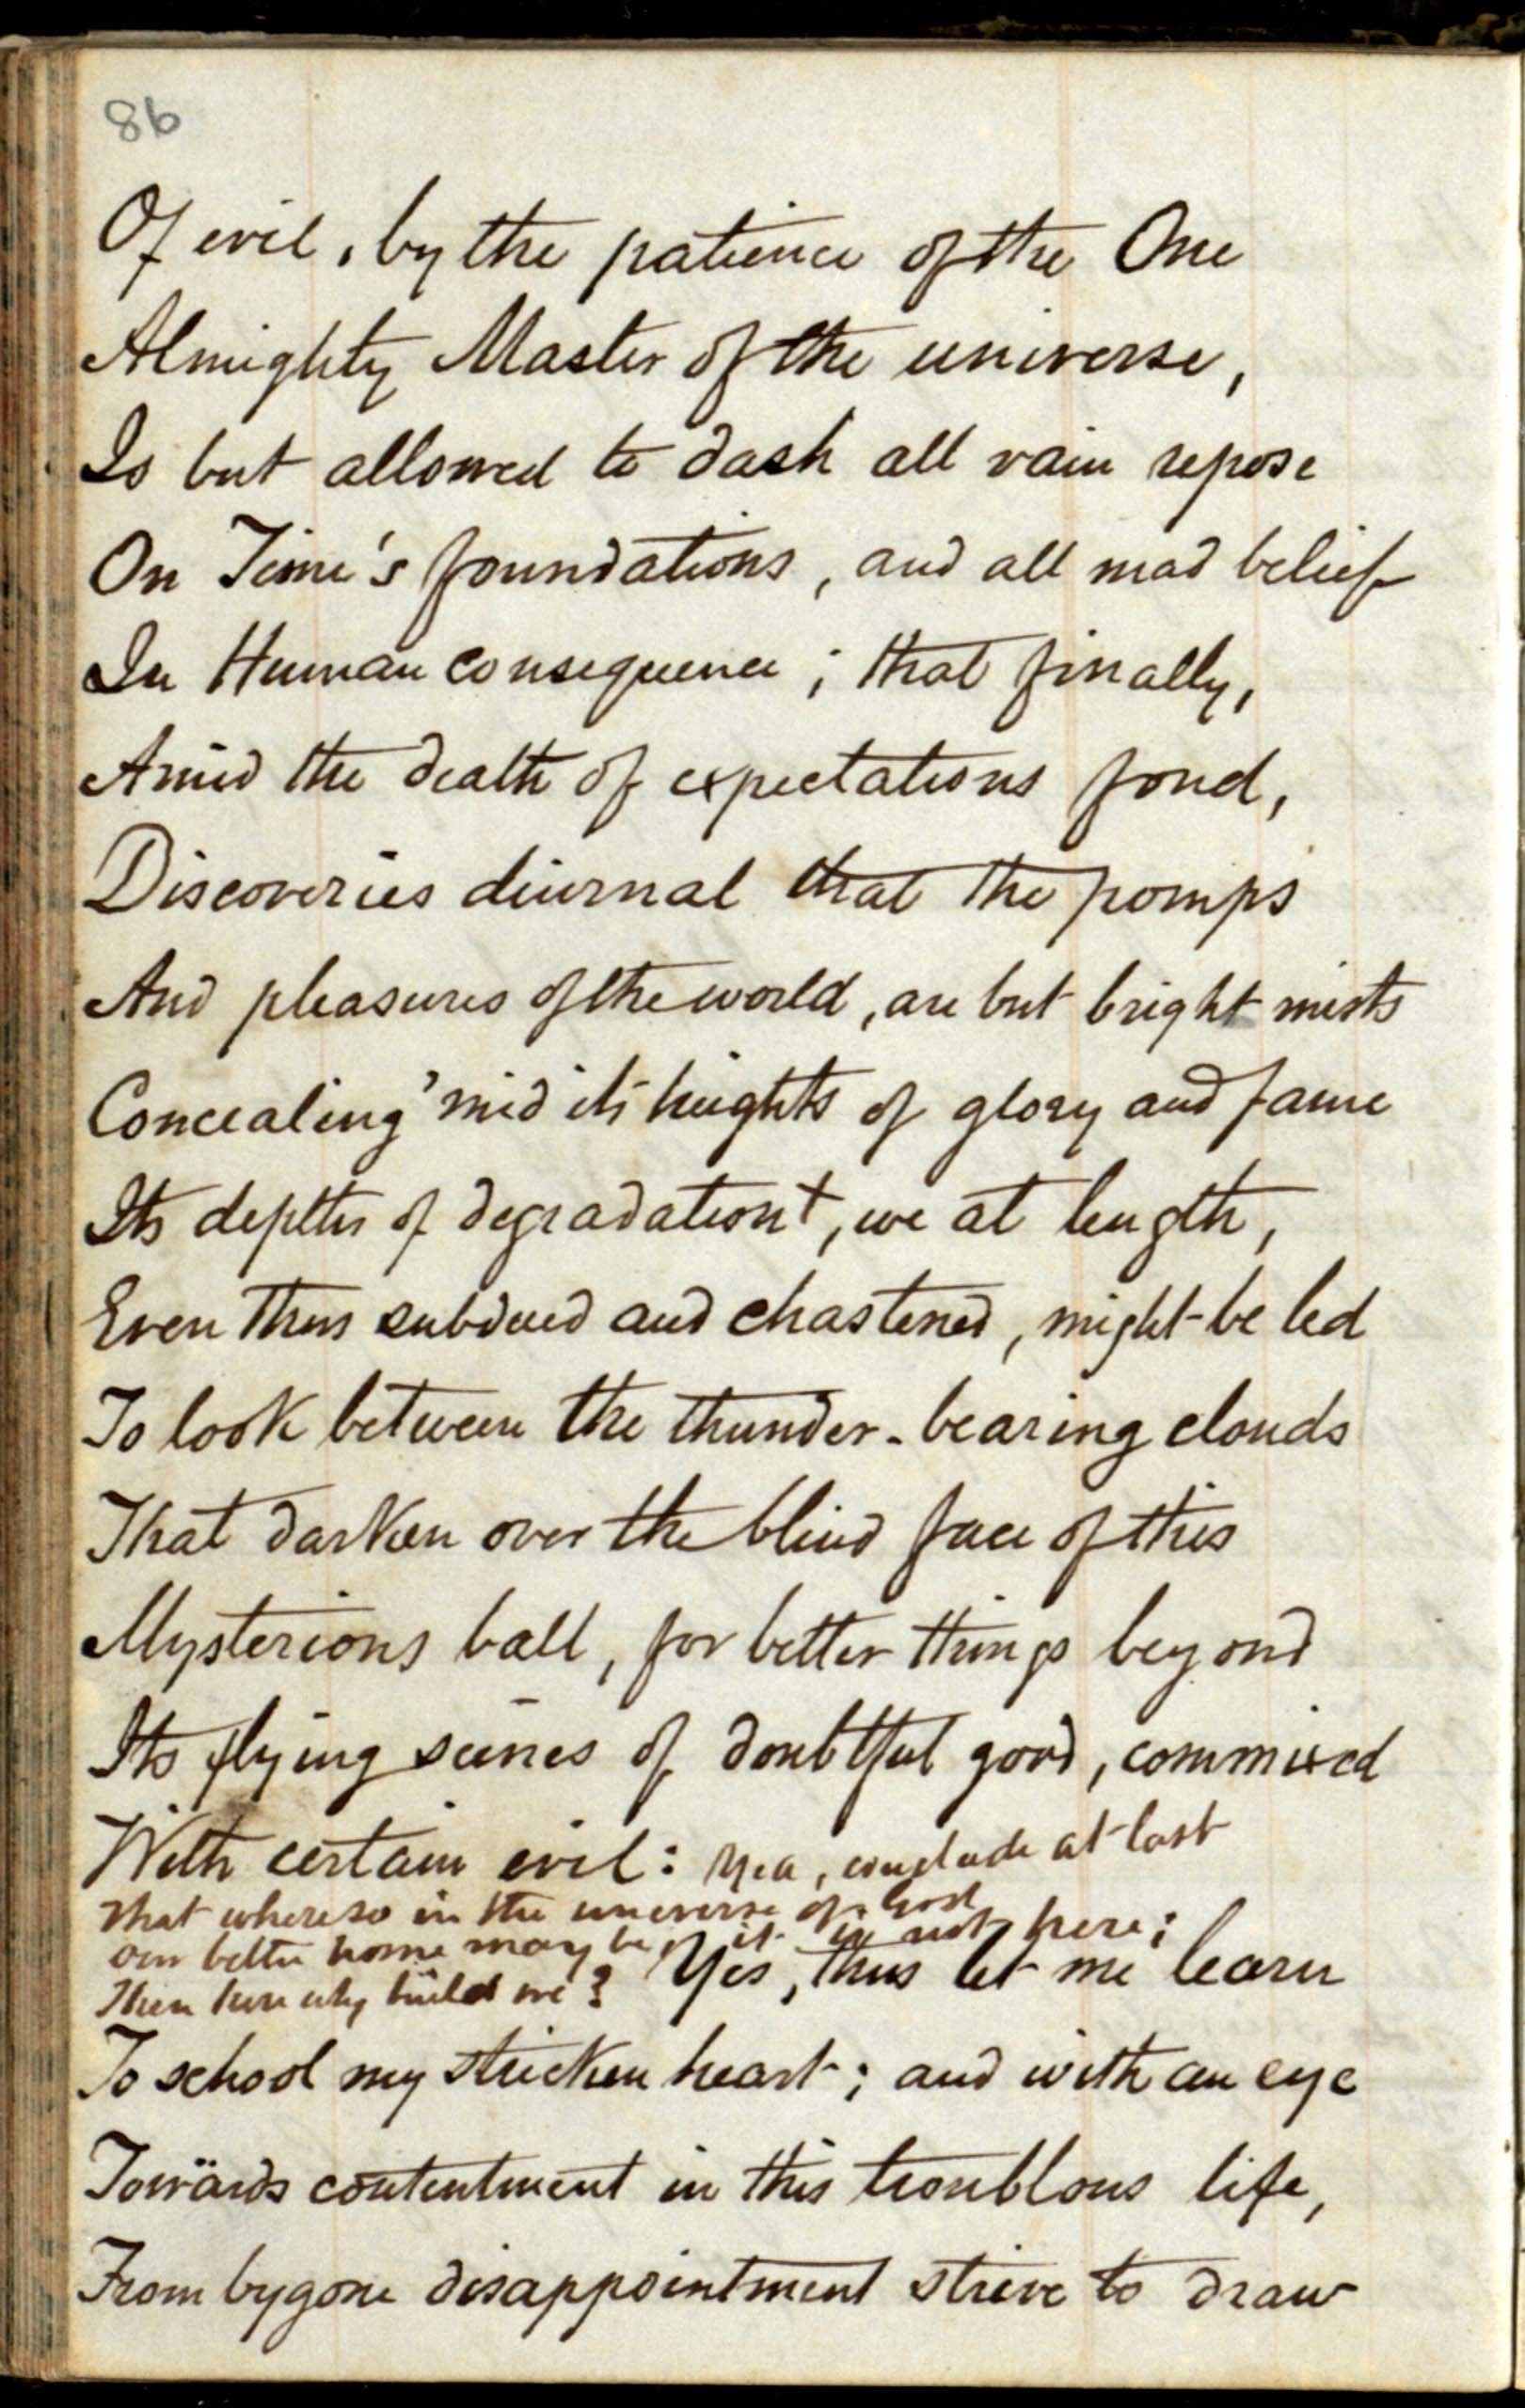 86
Of evil, by the patience of the One
Almighty Master of the universe,
Is but allowed to dash all vain repose
On Time's foundations, and all mad belief
In Human consequence; that finally,
Amid the death of expectations fond,
Discoveries diurnal that the pomps
And pleasures of the world, are but bright mists
Concealing 'mid its heights of glory and fame
Its depths of degradation†, we at length,
Even thus subdued and chastened, might be led
To look between the thunder-bearing clouds
That darken over the blind face of this
Mysterious ball, for better things beyond
Its flying scenes of doubtful good, commixed
With certain evil: Yea, conclude at last
That whereso in the universe of God
Our better home may be, it is not here;
Then here why build we? Yes, thus let me learn
To school my stricken heart; and with an eye
Towärds contentment in this troublous life,
From bygone disappointment strive to draw